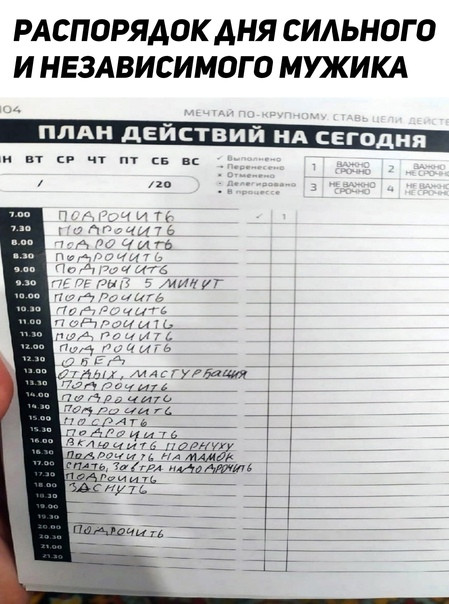 РАСПОРЯДОК ДНЯ СИЛЬНОГО
И НЕЗАВИСИМОГО МУЖИКА
МЕЧТАЙ ПО-КРУПНОМУ. СТАВЬ ЦЕЛИ. ДЕЙСТВ
ПЛАН ДЕЙСТВИЙ НА СЕГОДНЯ
Н ВТ СР ЧТ ПТ СБ ВС
/ /20
✓ Выполнено
→ Перенесено
× Отменено
Делегировано
• В процессе
1 ВАЖНО СРОЧНО 2 ВАЖНО НЕ СРОЧНО
3 НЕ ВАЖНО СРОЧНО 4 НЕ ВАЖНО НЕ СРОЧНО
7.00 ПОДРОЧИТЬ ✓ 1
7.30 ПОДРОЧИТЬ
8.00 ПОДРОЧИТЬ
8.30 ПОДРОЧИТЬ
9.00 ПОДРОЧИТЬ
9.30 ПЕРЕРЫВ 5 МИНУТ
10.00 ПОДРОЧИТЬ
10.30 ПОДРОЧИТЬ
11.00 ПОДРОЧИТЬ
11.30 ПОДРОЧИТЬ
12.00 ПОДРОЧИТЬ
12.30 ОБЕД
13.00 ОТДЫХ, МАСТУРБАЦИЯ
13.30 ПОДРОЧИТЬ
14.00 ПОДРОЧИТЬ
14.30 ПОДРОЧИТЬ
15.00 ПОСРАТЬ
15.30 ПОДРОЧИТЬ
16.00 ВКЛЮЧИТЬ ПОРНУХУ
16.30 ПОДРОЧИТЬ НА МАМОК
17.00 СПАТЬ, ЗАВТРА НАДО ДРОЧИТЬ
17.30 ПОДРОЧИТЬ
18.00 ЗАСНУТЬ
18.30
19.00
19.30
20.00 ПОДРОЧИТЬ
20.30
21.00
21.30